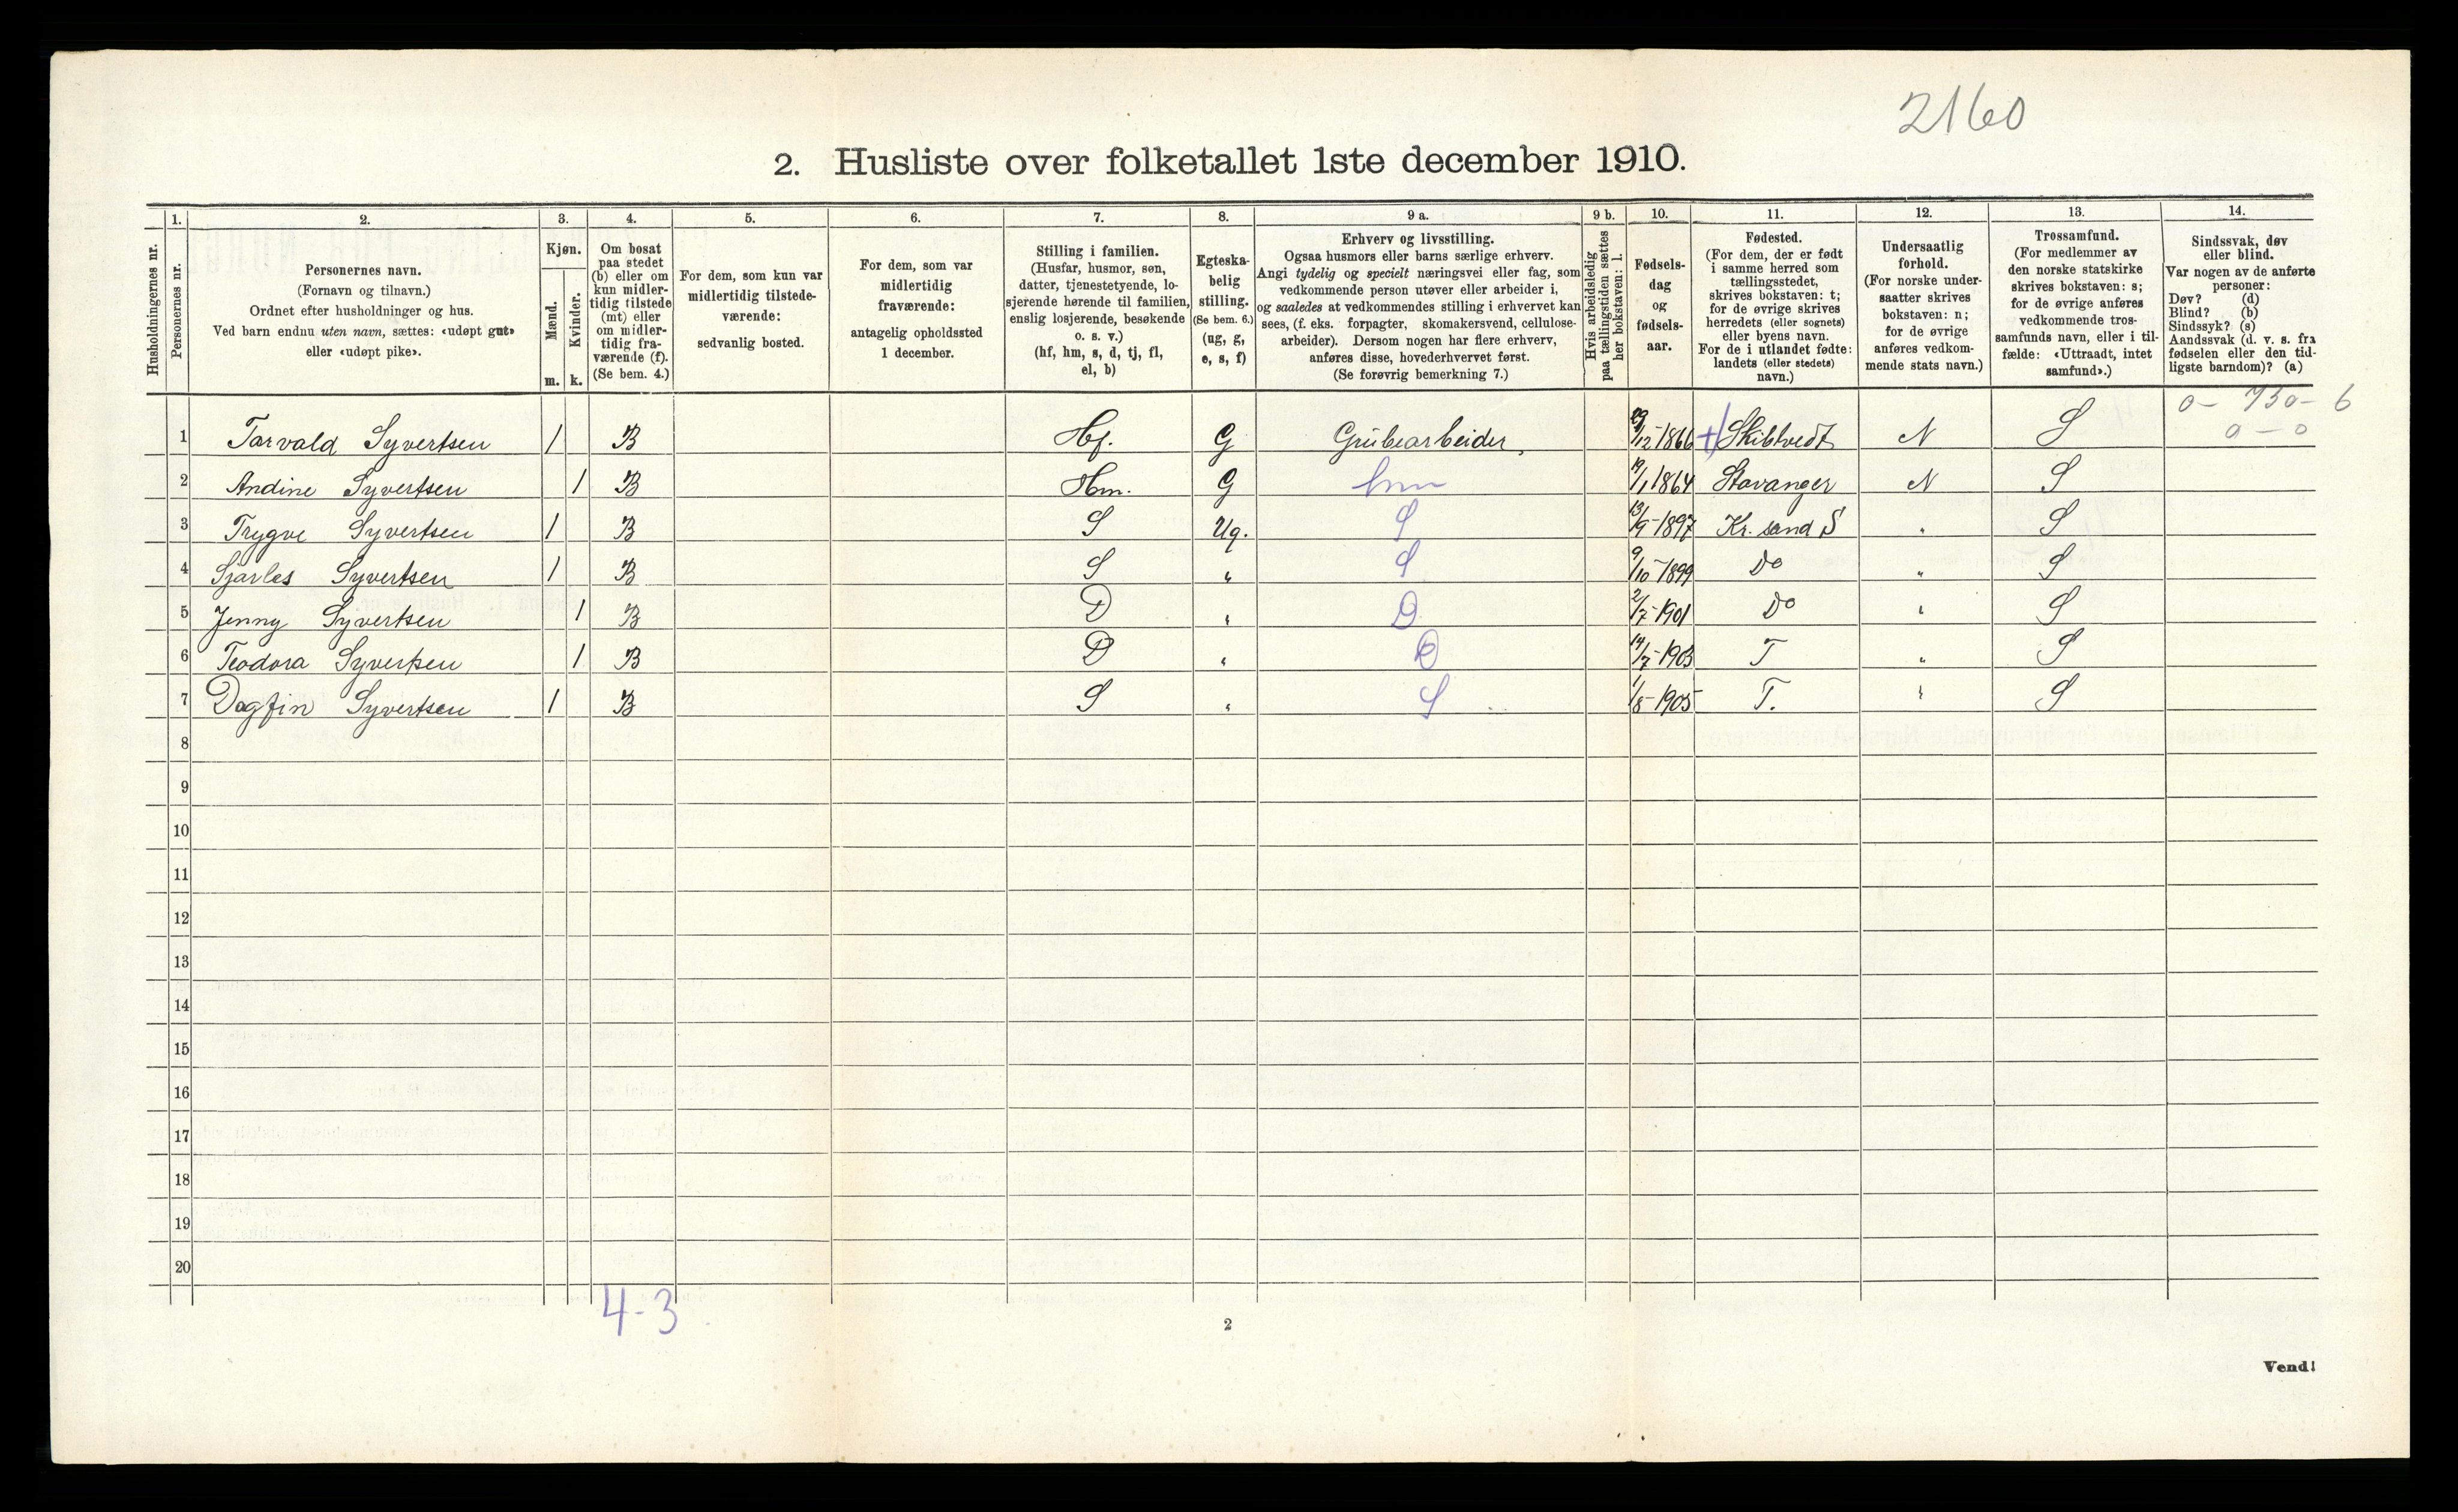 2160
2. Husliste over folketallet 1ste december 1910.
Husholdningernes nr.
1.
Personernes nr.
2.
Personernes navn.
(Fornavn og tilnavn.)
Ordnet efter husholdninger og hus.
Ved barn endnu uten navn, sættes: «udøpt gut»
eller «udøpt pike».
3.
Kjøn.
Mænd.
m.
Kvinder.
k.
4.
Om bosat
paa stedet
(b) eller om
kun midler-
tidig tilstede
(mt) eller
om midler-
tidig fra-
værende (f).
(Se bem. 4.)
5.
For dem, som kun var
midlertidig tilstede-
værende:
sedvanlig bosted.
6.
For dem, som var
midlertidig
fraværende:
antagelig opholdssted
1 december.
7.
Stilling i familien.
(Husfar, husmor, søn,
datter, tjenestetyende, lo-
sjerende hørende til familien,
enslig losjerende, besøkende
o. s. v.)
(hf, hm, s, d, tj, fl,
el, b)
8.
Egteska-
belig
stilling.
(Se bem. 6.)
(ug, g,
e, s, f)
9 a.
Erhverv og livsstilling.
Ogsaa husmors eller barns særlige erhverv.
Angi tydelig og specielt næringsvei eller fag, som
vedkommende person utøver eller arbeider i,
og saaledes at vedkommendes stilling i erhvervet kan
sees, (f. eks. forpagter, skomakersvend, cellulose-
arbeider). Dersom nogen har flere erhverv,
anføres disse, hovederhvervet først.
(Se forøvrig bemerkning 7.)
9 b.
Hvis arbeidsledig
paa tællingstiden sættes
her bokstaven: l.
10.
Fødsels-
dag
og
fødsels-
aar.
11.
Fødested.
(For dem, der er født
i samme herred som
tællingsstedet,
skrives bokstaven: t;
for de øvrige skrives
herredets (eller sognets)
eller byens navn.
For de i utlandet fødte:
landets (eller stedets)
navn.)
12.
Undersaatlig
forhold.
(For norske under-
saatter skrives
bokstaven: n;
for de øvrige
anføres vedkom-
mende stats navn.)
13.
Trossamfund.
(For medlemmer av
den norske statskirke
skrives bokstaven: s;
for de øvrige anføres
vedkommende tros-
samfunds navn, eller i til-
fælde: «Uttraadt, intet
samfund».)
14.
Sindssvak, døv
eller blind.
Var nogen av de anførte
personer:
Døv? (d)
Blind? (b)
Sindssyk? (s)
Aandssvak (d. v. s. fra
fødselen eller den tid-
ligste barndom)? (a)
0 - 730 - 6
0 - 0
1 Tarvald Syvertsen 1 B Hf. G Grubearbeider 29/12-1866 Skibtvedt N S
2 Andine Syvertsen 1 B Hm. G hm 19/1 1864 Stavanger N S
3 Trygve Syvertsen 1 B S Ug. S 13/9-1897 Kr. sand S " S
4 Sjarles Syvertsen 1 B S " S 9/10-1899 Do " S
5 Jenny Syvertsen 1 B D " D 2/7-1901 Do " S
6 Teodora Syvertsen 1 B D " D 14/7-1903 T " S
7 Dagfin Syvertsen 1 B S " S 1/8-1905 T. " S
8
9
10
11
12
13
14
15
16
17
18
19
20
4-3
2
Vend!